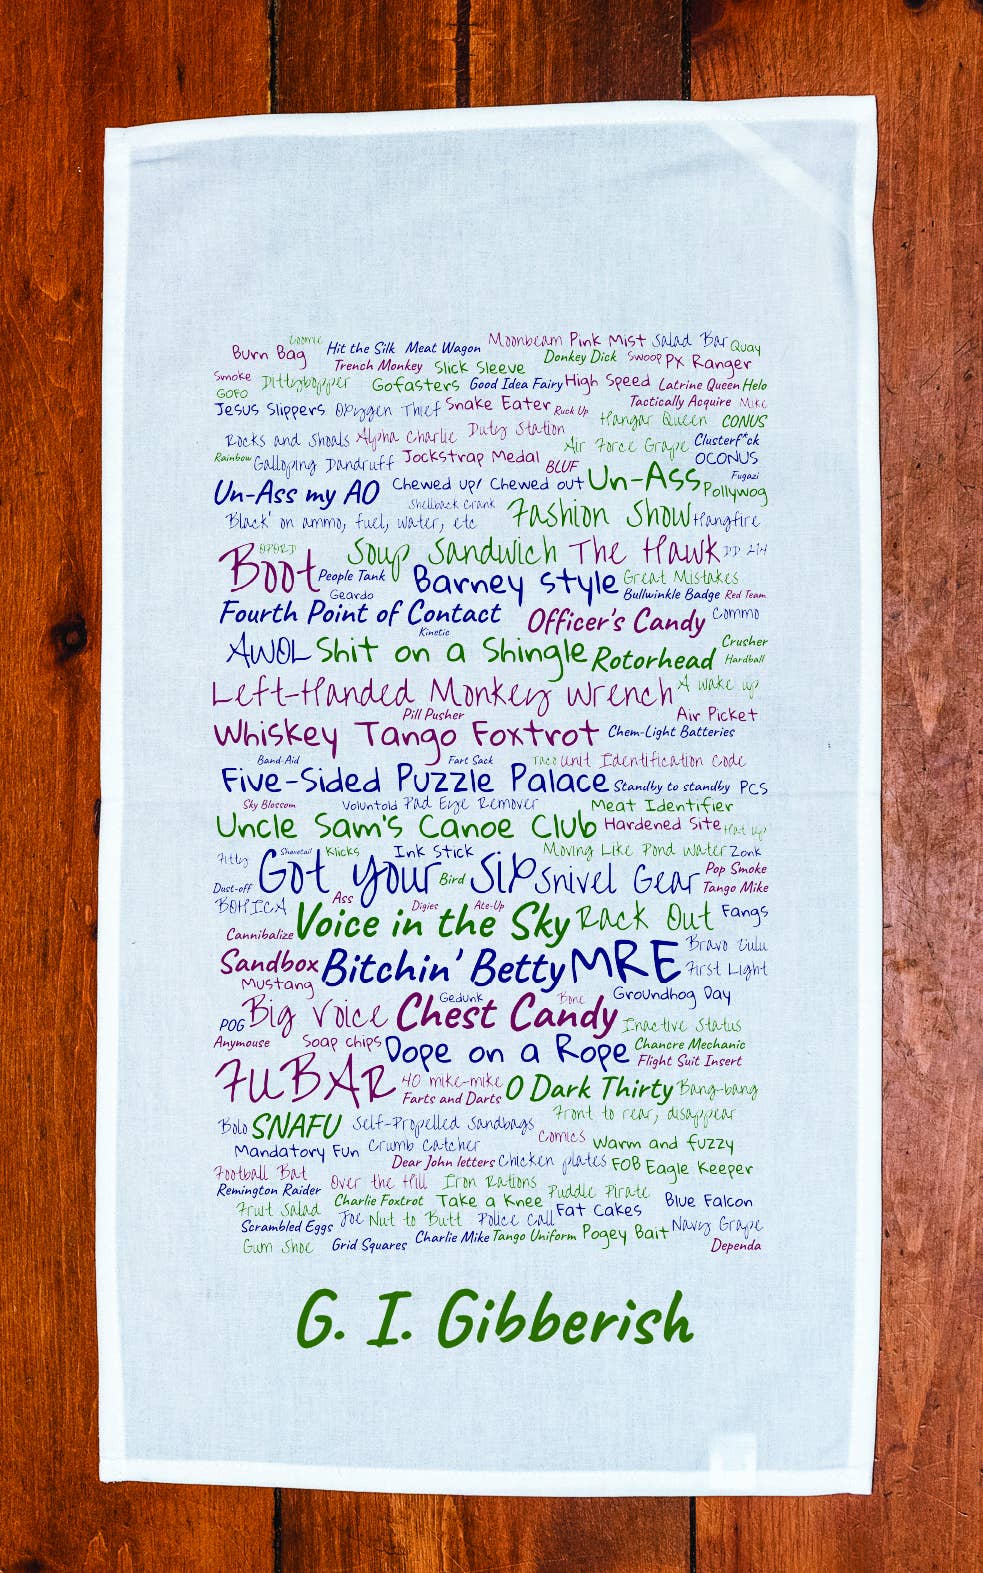 Commie
Burn Bag Hit the Silk Meat Wagon Moonbeam Pink Mist Salad Bar Quay
Trench Monkey Slick Sleeve Donkey Dick Swoop PX Ranger
Smoke Dittybopper Gofasters Good Idea Fairy High Speed Latrine Queen Helo
GOFO
Jesus Slippers Oxygen Thief Snake Eater Ruck Up Tactically Acquire Mike
Hangar Queen CONUS
Rocks and Shoals Alpha Charlie Duty Station Air Force Grape Clusterf*ck
Rainbow Galloping Dandruff Jockstrap Medal BLUF OCONUS
Un-Ass my AO Chewed up/ Chewed out Un-Ass Fugazi
Pollywog
Shellback Crank
'Black' on ammo, fuel, water, etc Fashion Show Hangfire
Boot OPORD Soup Sandwich The Hawk DD 214
People Tank Barney Style Great Mistakes
Geardo Bullwinkle Badge Red Team
Fourth Point of Contact Officer's Candy Commo
Kinetic
AWOL Shit on a Shingle Rotorhead Crusher
Hardball
Left-Handed Monkey Wrench A wake up
Pill Pusher Air Picket
Whiskey Tango Foxtrot Chem-Light Batteries
Band-Aid Fart Sack Taco Unit Identification Code
Five-Sided Puzzle Palace Standby to standby PCS
Sky Blossom Voluntold Pad Eye Remover Meat Identifier
Uncle Sam's Canoe Club Hardened Site Heat up
Fitty Shavetail Klicks Ink Stick Moving Like Pond Water Zonk
Dust-off Got Your Bird Six Snivel Gear Pop Smoke
Tango Mike
BOHICA Ass Digies Ate-Up
Cannibalize Voice in the Sky Rack Out Fangs
Sandbox Bitchin' Betty MRE Bravo Zulu
First Light
Mustang Gedunk Bone Groundhog Day
POG Big Voice Chest Candy Inactive Status
Anymouse Soap Chips Dope on a Rope Chancre Mechanic
Flight Suit Insert
FUBAR 40 mike-mike O Dark Thirty Bang-bang
Farts and Darts
Front to rear, disappear
Bolo SNAFU Self-Propelled Sandbags Comics Warm and fuzzy
Mandatory Fun Crumb Catcher
Dear John letters Chicken plates FOB Eagle Keeper
Football Bat Over the Hill Iron Rations
Remington Raider Charlie Foxtrot Take a Knee Puddle Pirate Blue Falcon
Fruit Salad Joe Nut to Butt Police Call Fat Cakes
Scrambled Eggs Navy Grape
Gum Shoe Grid Squares Charlie Mike Tango Uniform Pogey Bait Dependa
G. I. Gibberish